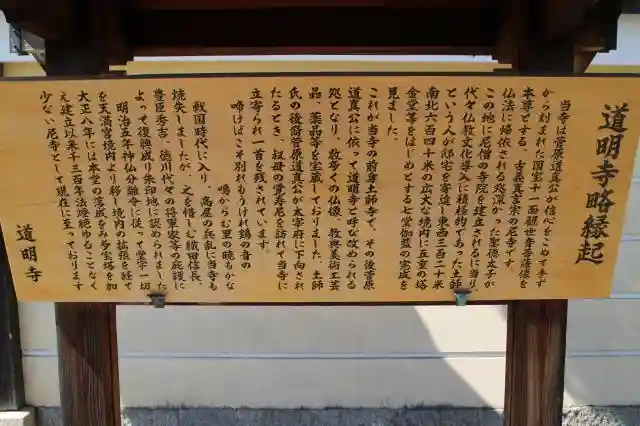 道明寺略縁起
当寺は菅原道真公が信心をこめて手ず
から刻まれた国宝十一面観世音菩薩像を
本尊とする、古義真言宗の尼寺です。
仏法に帰依される処深かった聖徳太子が
この地に尼僧の寺院を建立されるに当り、
代々仏教文化導入に積極的であった土師
という人が邸宅を寄進し東西三百二十米
南北六百四十米の広大な境内に五重の塔
金堂等をはじめとする七堂伽藍の完成を
見ました。
これが当寺の前身土師寺で、その後菅原
道真公に依って道明寺と呼び改められる
処となり、数多くの仏像、教典美術工芸
品、薬品等を宝蔵しておりました。土師
氏の後裔菅原道真公が太宰府に下向され
たるとき、叔母の覚寿尼を訪れて当寺に
立寄られ一首を残されています。
啼けばこそ別れもうけれ鶏の音の
鳴からむ里の暁もかな
戦国時代に入り、高屋の兵乱で当寺も
焼失しましたが、之を惜しむ織田信長、
豊臣秀吉、徳川代々の将軍家等の庇護に
よって復興成り朱印地に認められました
明治五年神仏分離令に従って堂宇一切
を天満宮境内より移し境内の拡張を経て
大正八年には本堂の落成をみ多宝塔を加
え建立以来千三百年法燈絶ゆることなく
少ない尼寺として現在に至っております
道明寺